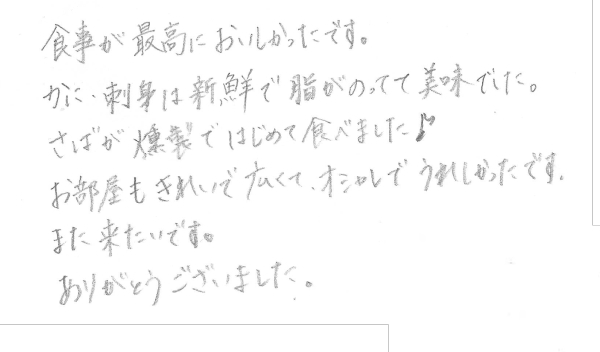 食事が最高においしかったです。
かに・刺身は新鮮で脂がのってて美味でした。
さばが燻製ではじめて食べました♪
お部屋もきれいで広くて、オシャレでうれしかったです。
また来たいです。
ありがとうございました。